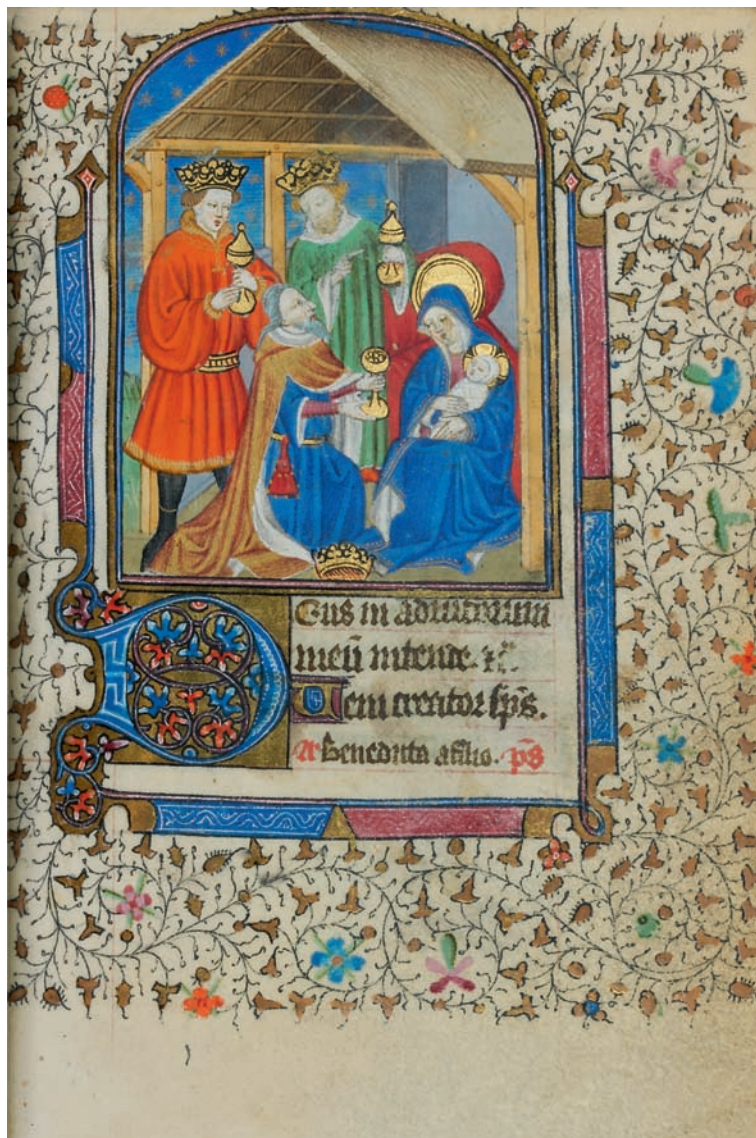 Deus in adiutorium
meū intende. 
Ueni creator sp̄s.
A Benedicta a filio. p̄s